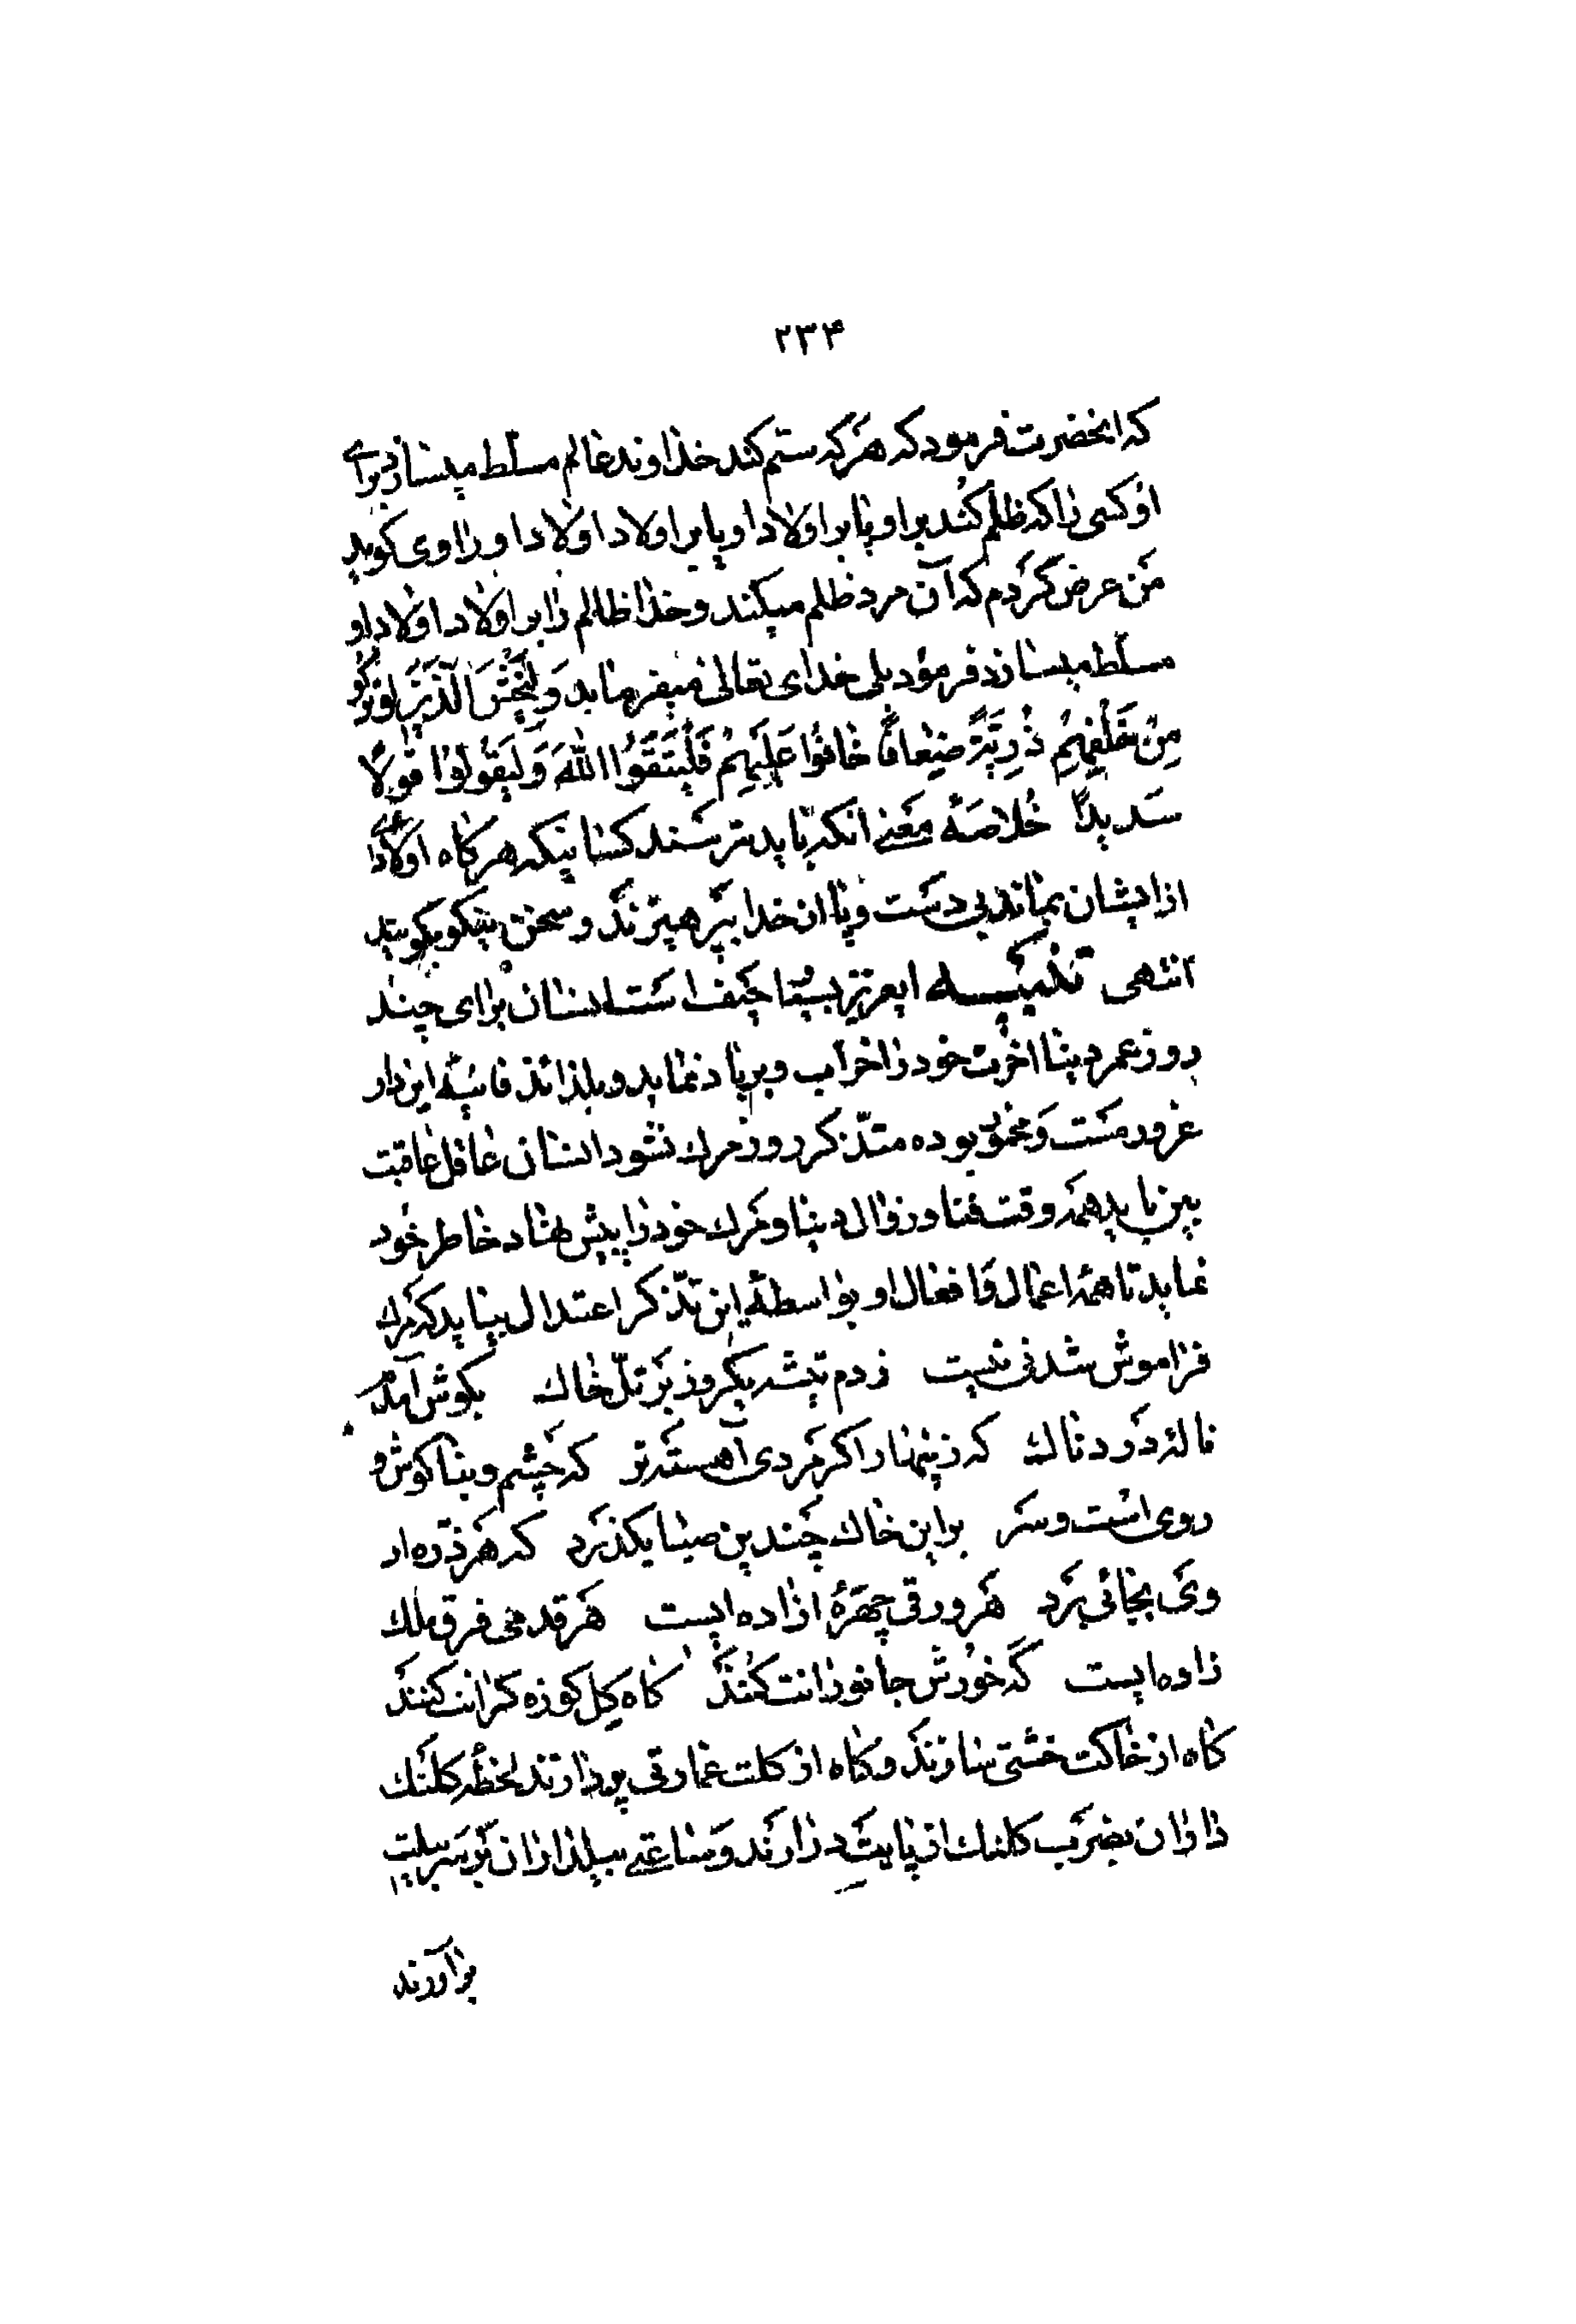 ۲۳۴
که انحضرت فرمود که هرکه ستم کند خداوند عالم مسلط میسازد برای
او کسی را که ظلم کند بر او یا بر اولاد او یا بر اولاد اولاد او راوی کوید
من عرض کردم که آن مرد ظلم میکند و خدا ظالم را بر اولاد اولاد او
مسلط میسازد فرمود بلی خدای تعالی میفرماید وَلْیَخْشَ الَّذینَ لَوْ تَرَکُوا
مِنْ خَلْفِهِمْ ذُرِّیَّةً ضِعافًا خافُوا عَلَیْهِمْ فَلْیَتَّقُوا اللهَ وَلْیَقُولُوا قَولًا
سَدیدًا خُلاصَهٔ معنی انکه باید بترسند کسانیکه هرکاه اولادی
از ایشان بماند بی دست و پا از خدا بپرهیزند و سخن نیکو بکویند
انتهی تنبیه ایعزیز بسیار حیف است انسان برای چند
روز عمر دنیا اخرت خود را خراب و برباد نماید و بلذائذ فانیهٔ این دار
غرور مست و مخمور بوده متذکر روز مرك نشود انسان غافل عاقبت
بین باید همه وقت فنا و زوال دنیا و مرك خود را پیش نهاد خاطر خود
نماید تا همه اعمال و افعال او بواسطهٔ این تذکر اعتدال بیابد که مرك
فراموش شدنی نیست زدم تیشه یکروز بر تلّ خاك بکوش آمدم
نالهٔ دردناك که زینهار اگر مردی آهسته تر که چشم و بناکوش و
روی است و سر بر این خاك چندین صبا بکذرد که هر ذره از
وی بجائی برد هر ورقی چهرهٔ ازاده ایست هر قدمی فرق ملك
زاده ایست گه خورش جانورانت کنند کاه کل کوزه کرانت کنند
کاه از خاکت خشتی سازند و کاه از کلت عمارتی پردازند لحظه کلنك
داران بضرب کلنك از پایت درارند و ساعتی بیلداران بر سر بیلت
برآورند